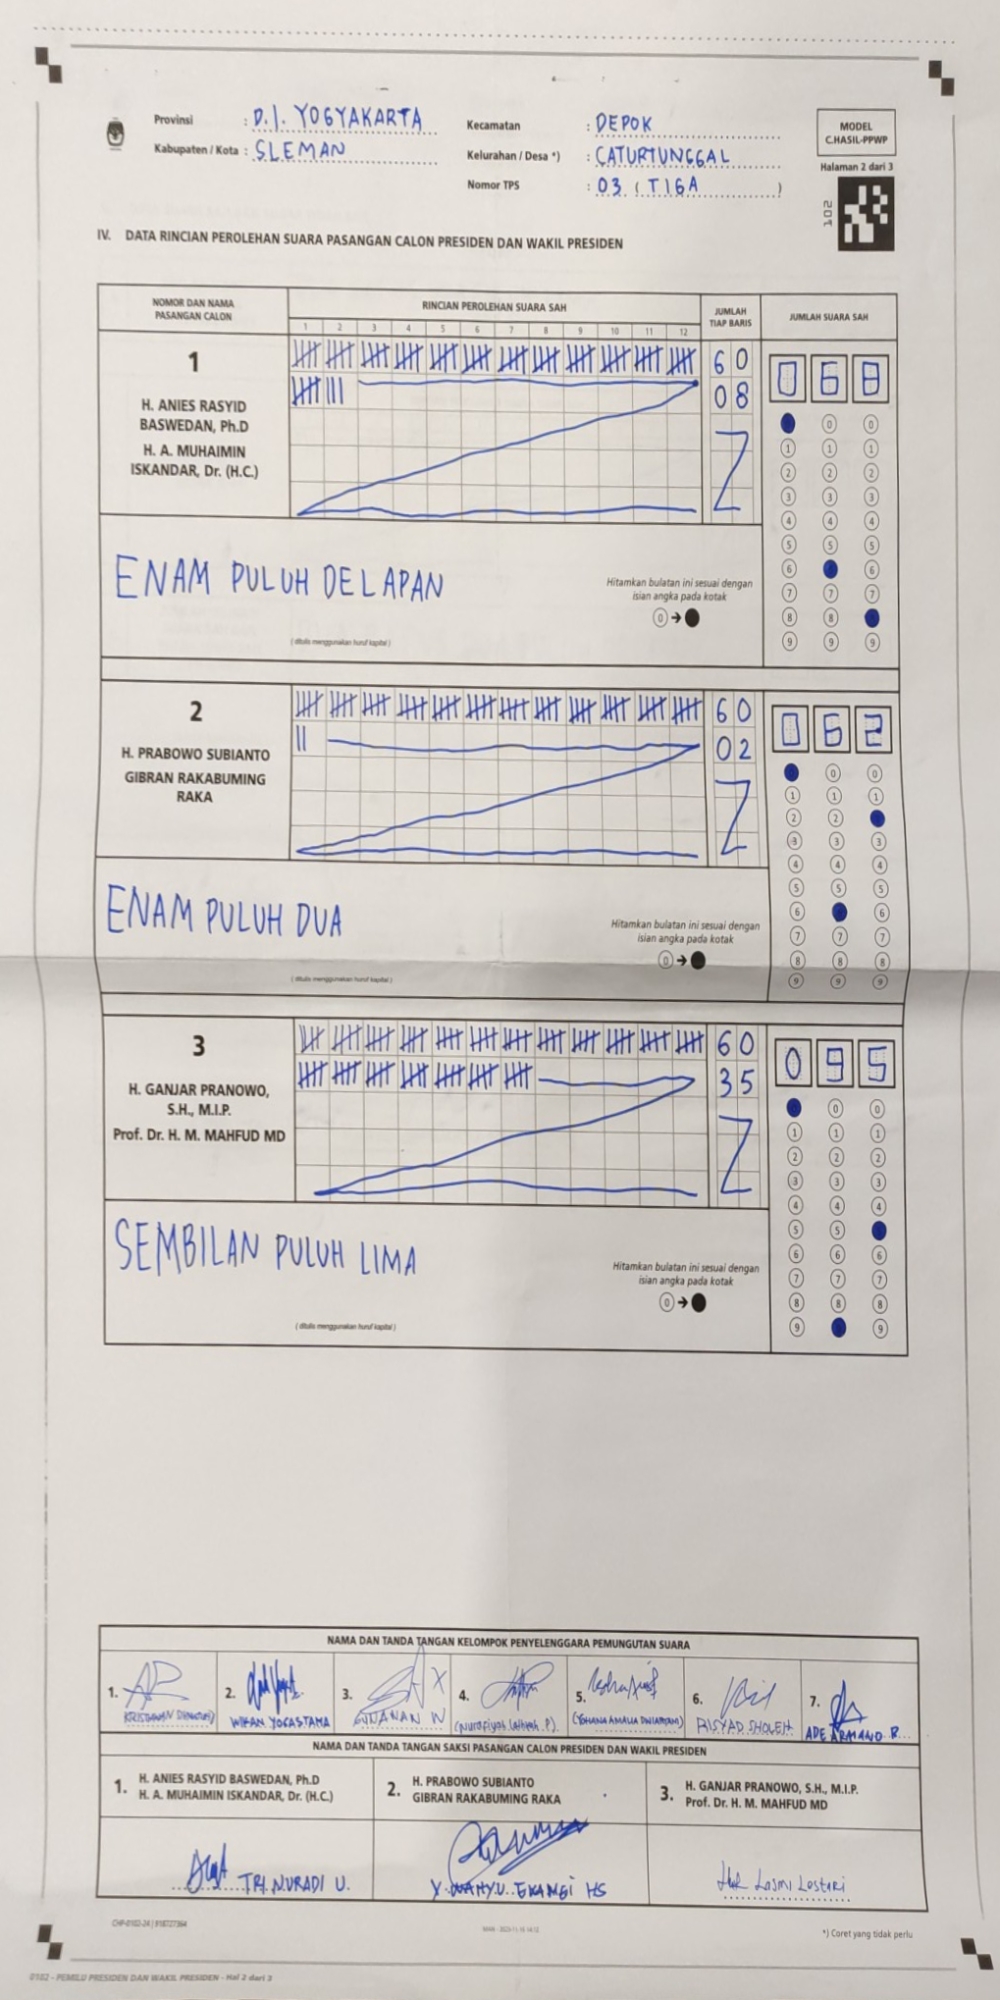 Provinsi : D.I. YOGYAKARTA
Kabupaten / Kota : SLEMAN
Kecamatan : DEPOK
Kelurahan / Desa *) : CATURTUNGGAL
Nomor TPS : 03 ( TIGA )
MODEL
C.HASIL-PPWP
Halaman 2 dari 3
102
IV. DATA RINCIAN PEROLEHAN SUARA PASANGAN CALON PRESIDEN DAN WAKIL PRESIDEN
NOMOR DAN NAMA
PASANGAN CALON
RINCIAN PEROLEHAN SUARA SAH
1 2 3 4 5 6 7 8 9 10 11 12
JUMLAH
TIAP BARIS
JUMLAH SUARA SAH
1
H. ANIES RASYID
BASWEDAN, Ph.D
H. A. MUHAIMIN
ISKANDAR, Dr. (H.C.)
60
08
068
ENAM PULUH DELAPAN
( ditulis menggunakan huruf kapital )
Hitamkan bulatan ini sesuai dengan
isian angka pada kotak
0
0 0
1 1 1
2 2 2
3 3 3
4 4 4
5 5 5
6 6
7 7 7
8 8
9 9 9
2
H. PRABOWO SUBIANTO
GIBRAN RAKABUMING
RAKA
60
02
062
ENAM PULUH DUA
( ditulis menggunakan huruf kapital )
Hitamkan bulatan ini sesuai dengan
isian angka pada kotak
0
0 0
1 1 1
2 2
3 3 3
4 4 4
5 5 5
6 6
7 7 7
8 8 8
9 9 9
3
H. GANJAR PRANOWO,
S.H., M.I.P.
Prof. Dr. H. M. MAHFUD MD
60
35
095
SEMBILAN PULUH LIMA
( ditulis menggunakan huruf kapital )
Hitamkan bulatan ini sesuai dengan
isian angka pada kotak
0
0 0
1 1 1
2 2 2
3 3 3
4 4 4
5 5
6 6 6
7 7 7
8 8 8
9 9
NAMA DAN TANDA TANGAN KELOMPOK PENYELENGGARA PEMUNGUTAN SUARA
1. 2. 3. 4. 5. 6. 7.
WIKAN YOGASTAMA
RISYAD SHOLEH
ADE ARMAND R.
NAMA DAN TANDA TANGAN SAKSI PASANGAN CALON PRESIDEN DAN WAKIL PRESIDEN
1. H. ANIES RASYID BASWEDAN, Ph.D
H. A. MUHAIMIN ISKANDAR, Dr. (H.C.)
2. H. PRABOWO SUBIANTO
GIBRAN RAKABUMING RAKA
3. H. GANJAR PRANOWO, S.H., M.I.P.
Prof. Dr. H. M. MAHFUD MD
TRI NURADI U.
Y. WAHYU EKA HS
Lasmi Lestari
*) Coret yang tidak perlu
0102 - PEMILU PRESIDEN DAN WAKIL PRESIDEN - Hal 2 dari 3